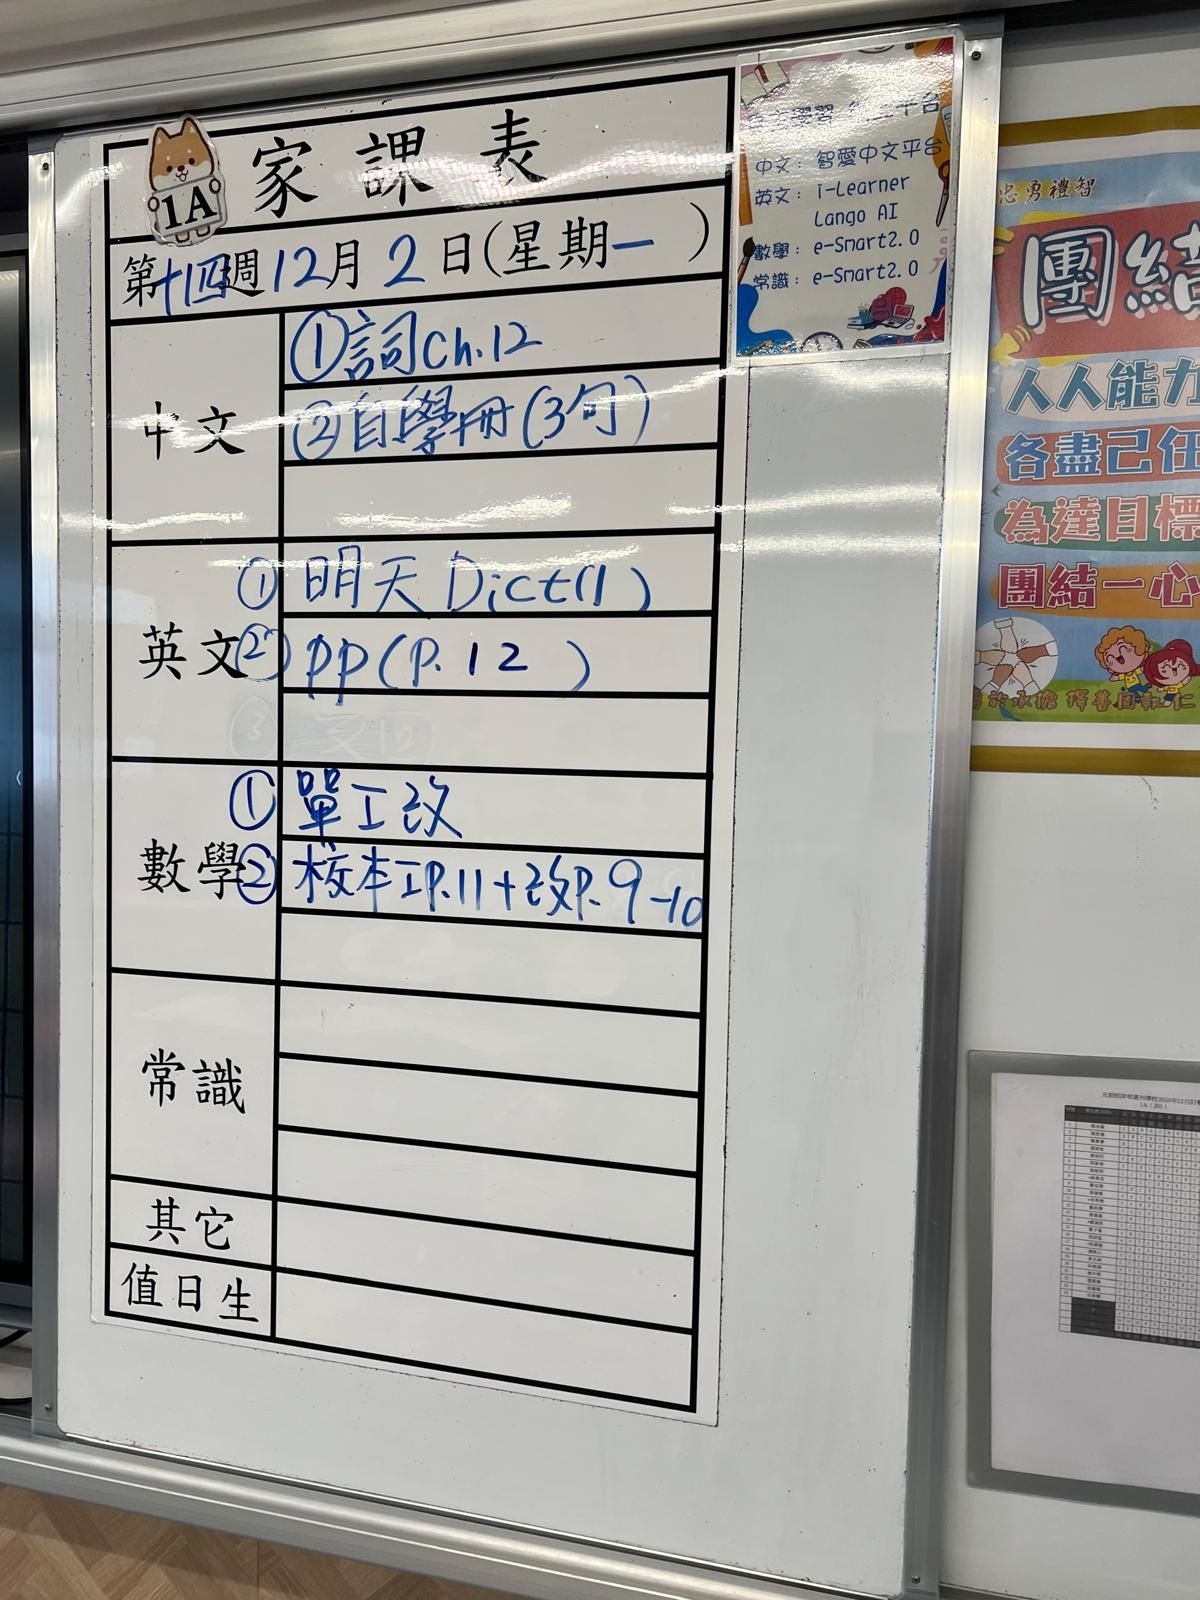 1A
家課表
第十四週12月2日(星期一)
中文
①詞Ch.12
②自學冊(3句)
英文
①明天Dict(1)
②pp(P.12)
數學
①單工改
②校本工P.11+改P.9-10
常識
其它
值日生
學習
平台
中文：智愛中文平台
英文：i-Learner
Lango AI
數學：e-Smart2.0
常識：e-Smart2.0
忠勇禮智
團結
人人能力
各盡己任
為達目標
團結一心
承擔 擇善固執 仁